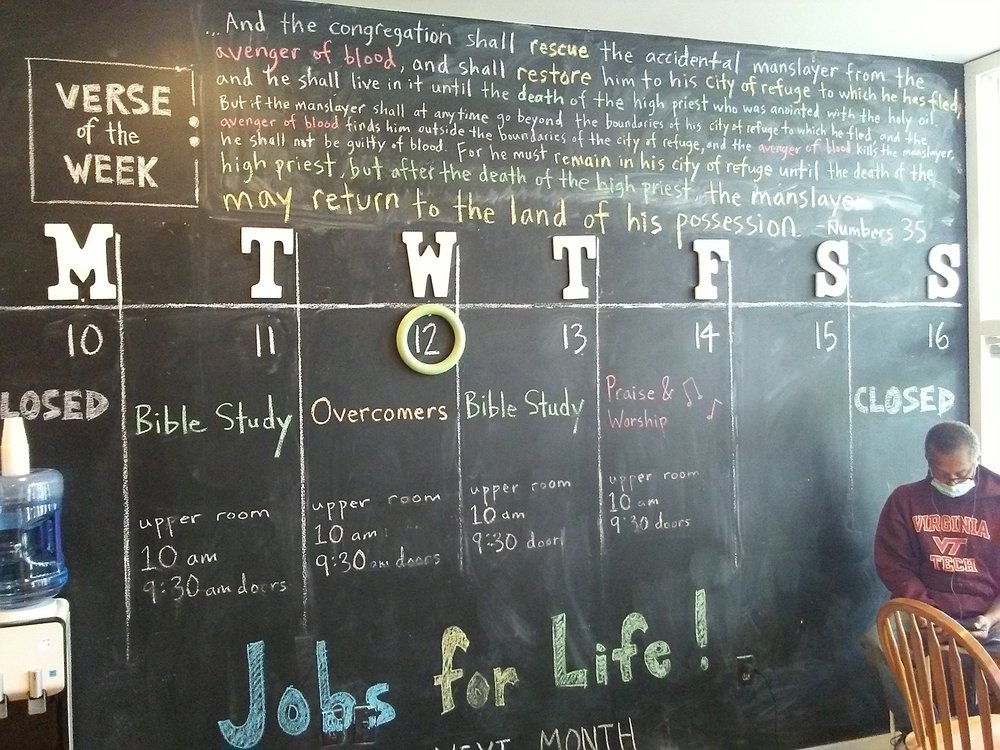 ...And the congregation shall rescue the accidental manslayer from the
avenger of blood, and shall restore him to his city of refuge to which he has fled,
and he shall live in it until the death of the high priest who was anointed with the holy oil.
But if the manslayer shall at any time go beyond the boundaries of his city of refuge to which he fled, and the
avenger of blood finds him outside the boundaries of the city of refuge, and the avenger of blood kills the manslayer,
he shall not be guilty of blood. For he must remain in his city of refuge until the death of the
high priest, but after the death of the high priest, the manslayer
may return to the land of his possession - Numbers 35
VERSE
of the
WEEK
:
M T W T F S S
10 11 12 13 14 15 16
LOSED
Bible Study
Overcomers
Bible Study
Praise &
Worship
CLOSED
upper room
10 am
9:30 am doors
upper room
10 am
9:30 am doors
upper room
10 am
9:30 door
upper room
10 am
9:30 doors
Jobs for Life!
NEXT MONTH
VIRGINIA
VT
TECH